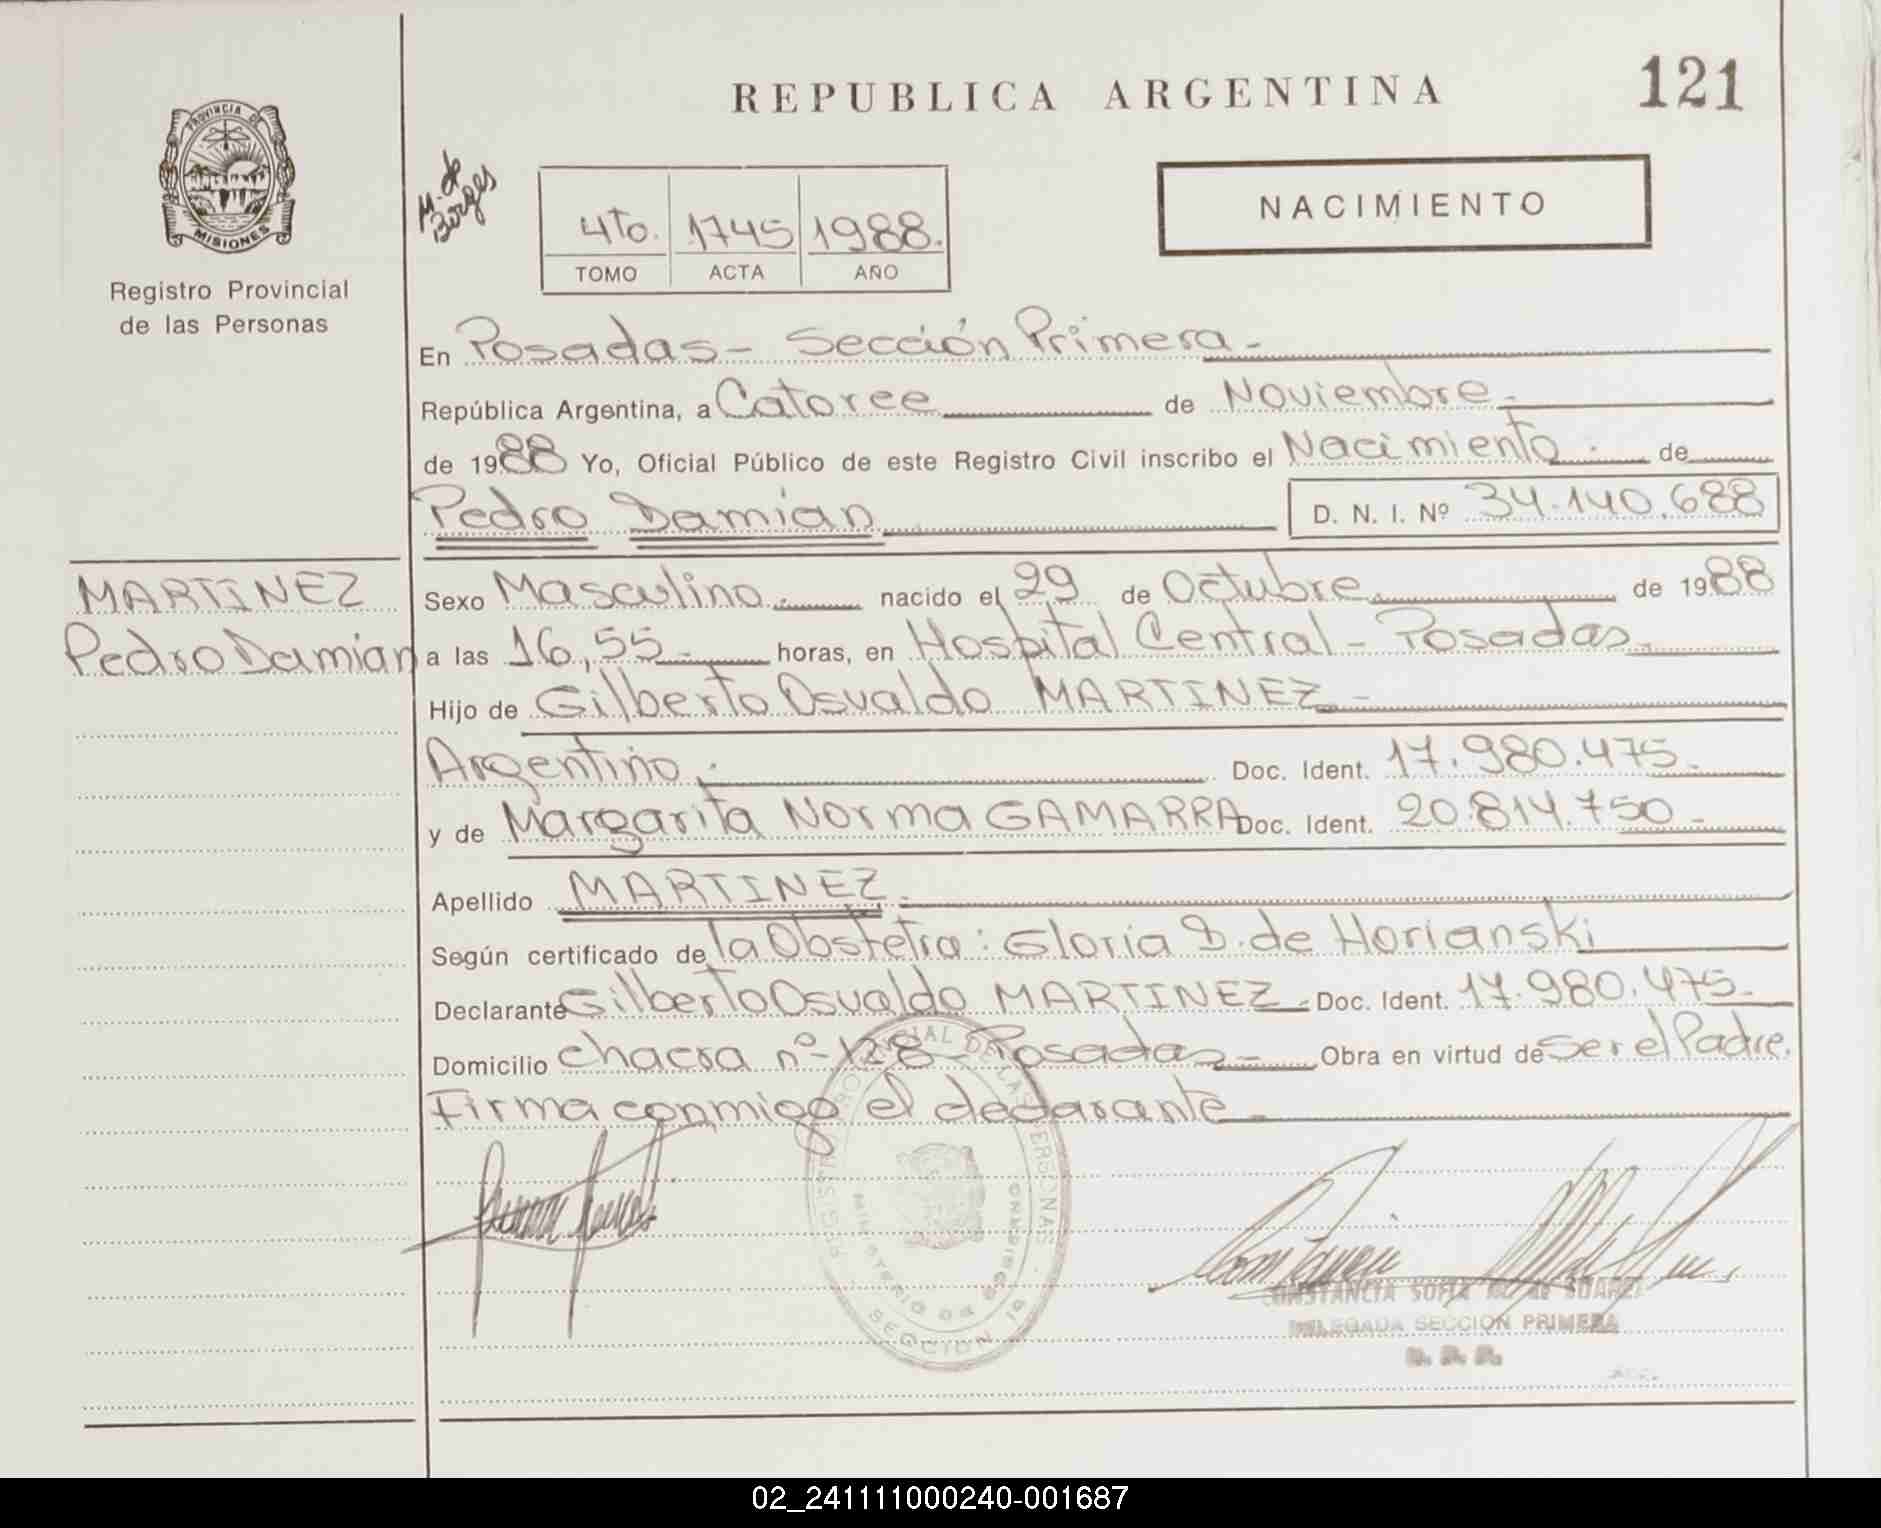 REPUBLICA ARGENTINA
121
PROVINCIA DE
MISIONES
Registro Provincial
de las Personas
M. de
Borges
4to. 1745 1988.
TOMO ACTA AÑO
NACIMIENTO
En Posadas - Sección Primera -
República Argentina, a Catorce de Noviembre.-
de 1988 Yo, Oficial Público de este Registro Civil inscribo el Nacimiento.- de
Pedro Damián D. N. I. Nº 34.140.688
MARTINEZ
Pedro Damián
Sexo Masculino.- nacido el 29 de Octubre. de 1988
a las 16,55.- horas, en Hospital Central - Posadas.
Hijo de Gilberto Osvaldo MARTINEZ.-
Argentino.- Doc. Ident. 17.980.475.
y de Margarita Norma GAMARRA Doc. Ident. 20.814.750.-
Apellido MARTINEZ.
Según certificado de la Obstetra: Gloria D. de Horianski
Declarante Gilberto Osvaldo MARTINEZ.- Doc. Ident. 17.980.475.
Domicilio chacra nº 128 - Posadas.- Obra en virtud de ser el Padre.
Firma conmigo el declarante.-
REGISTRO PROVINCIAL DE LAS PERSONAS
MINISTERIO DE GOBIERNO
SECCION 1a
CONSTANCIA SOFIA M. de SUAREZ
DELEGADA SECCION PRIMERA
02_241111000240-001687